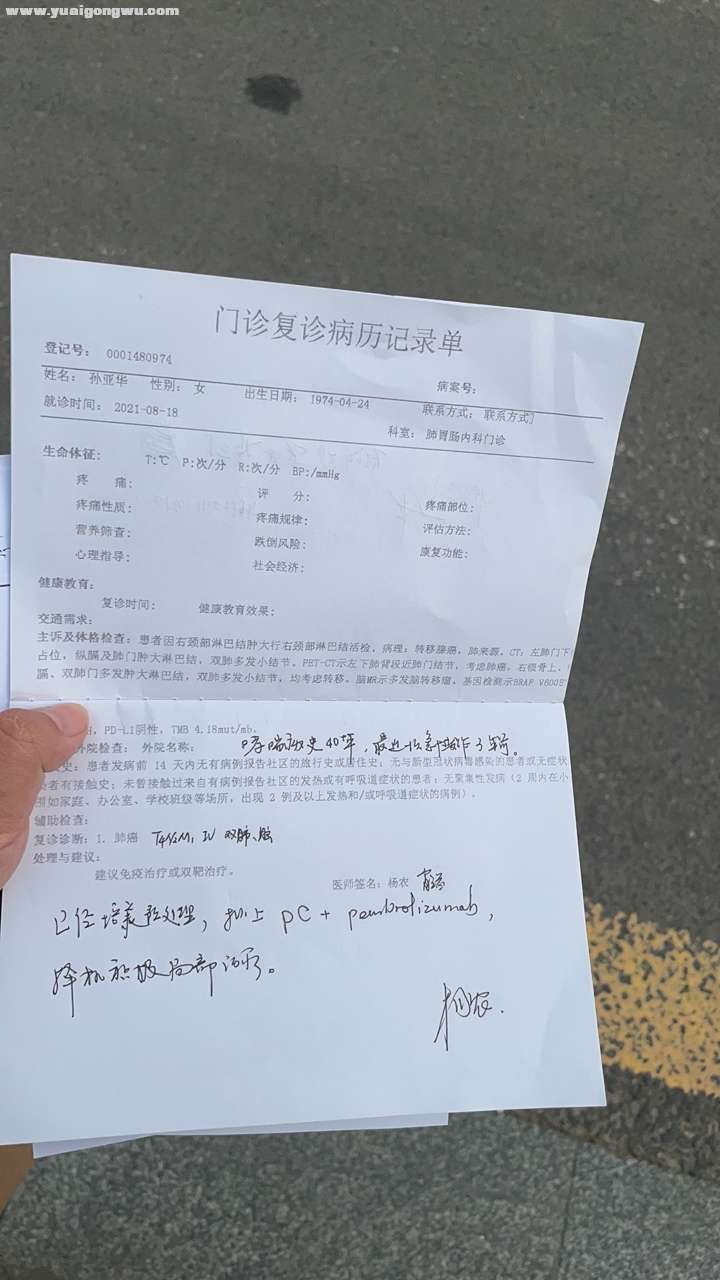 www.yuaigongwu.com
门诊复诊病历记录单
登记号： 0001480974
病案号：
姓名： 孙亚华 性别： 女 出生日期： 1974-04-24 联系方式： 联系方式]
就诊时间： 2021-08-18 科室： 肺胃肠内科门诊
生命体征： T:℃ P:次/分 R:次/分 BP:/mmHg
疼 痛： 评 分： 疼痛部位：
疼痛性质： 疼痛规律： 评估方法：
营养筛查： 跌倒风险： 康复功能：
心理指导： 社会经济：
健康教育：
复诊时间： 健康教育效果：
交通需求：
主诉及体格检查：患者因右颈部淋巴结肿大行右颈部淋巴结活检，病理：转移腺癌，肺来源。CT：左肺门下
占位，纵膈及肺门肿大淋巴结，双肺多发小结节。PET-CT示左下肺背段近肺门结节，考虑肺癌，右锁骨上、
膈、双肺门多发肿大淋巴结，双肺多发小结节，均考虑转移。脑MR示多发脑转移瘤。基因检测示BRAF V600E
PD-L1阴性，TMB 4.18mut/mb。
外院检查： 外院名称： 哮喘病史40年，最近一次急性发作3年前。
史：患者发病前 14 天内无有病例报告社区的旅行史或居住史；无与新型冠状病毒感染的患者或无症状
染者有接触史；未曾接触过来自有病例报告社区的发热或有呼吸道症状的患者；无聚集性发病（2 周内在小
围如家庭、办公室、学校班级等场所，出现 2 例及以上发热和/或呼吸道症状的病例）。
辅助检查：
复诊诊断：1. 肺癌 IV 双肺、脑
处理与建议：
建议免疫治疗或双靶治疗。
医师签名：杨农
已经培美预处理，拟上 PC + pembrolizumab，
择机积极局部治疗。
杨农.